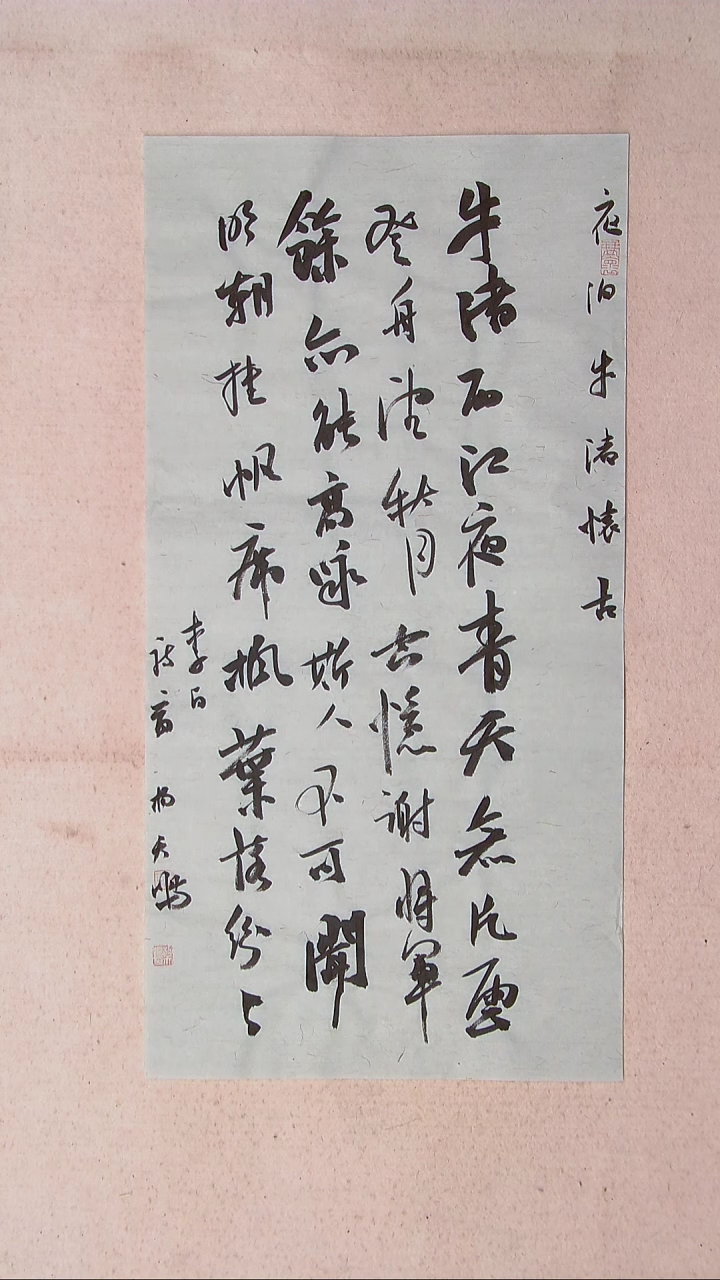 夜泊牛渚懷古
牛渚西江夜青天無片雲
登舟望秋月空憶謝將軍
餘亦能高咏斯人不可聞
明朝挂帆席楓葉落紛々
李白
詩 天